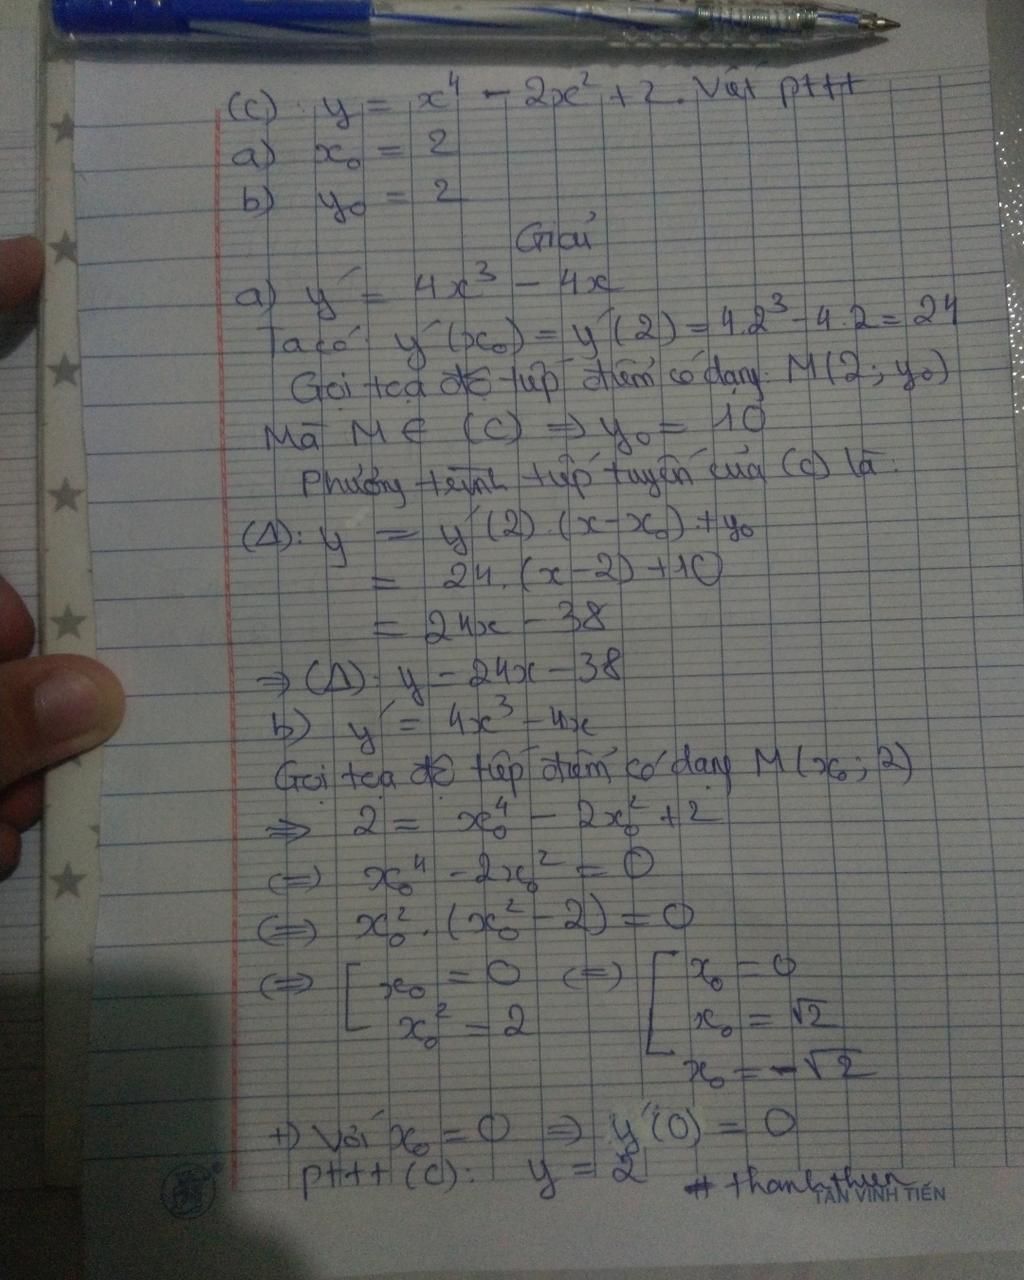 (C): y = x⁴ - 2x² + 2. Viết pttt
a) x₀ = 2
b) y₀ = 2
Giải
a) y' = 4x³ - 4x
Ta có: y'(x₀) = y'(2) = 4.2³ - 4.2 = 24
Gọi tọa độ tiếp điểm có dạng: M(2; y₀)
Mà M ∈ (C) ⇒ y₀ = 10
Phương trình tiếp tuyến của (C) là:
(Δ): y = y'(2).(x - x₀) + y₀
= 24.(x - 2) + 10
= 24x - 38
⇒ (Δ): y = 24x - 38
b) y' = 4x³ - 4x
Gọi tọa độ tiếp điểm có dạng M(x₀; 2)
⇒ 2 = x₀⁴ - 2x₀² + 2
⇔ x₀⁴ - 2x₀² = 0
⇔ x₀².(x₀² - 2) = 0
⇔ [ x₀ = 0 ⇔ [ x₀ = 0
x₀² = 2 x₀ = √2
x₀ = -√2
+) Với x₀ = 0 ⇒ y'(0) = 0
pttt (C): y = 2 # thanhthien
TÂN VĨNH TIẾN